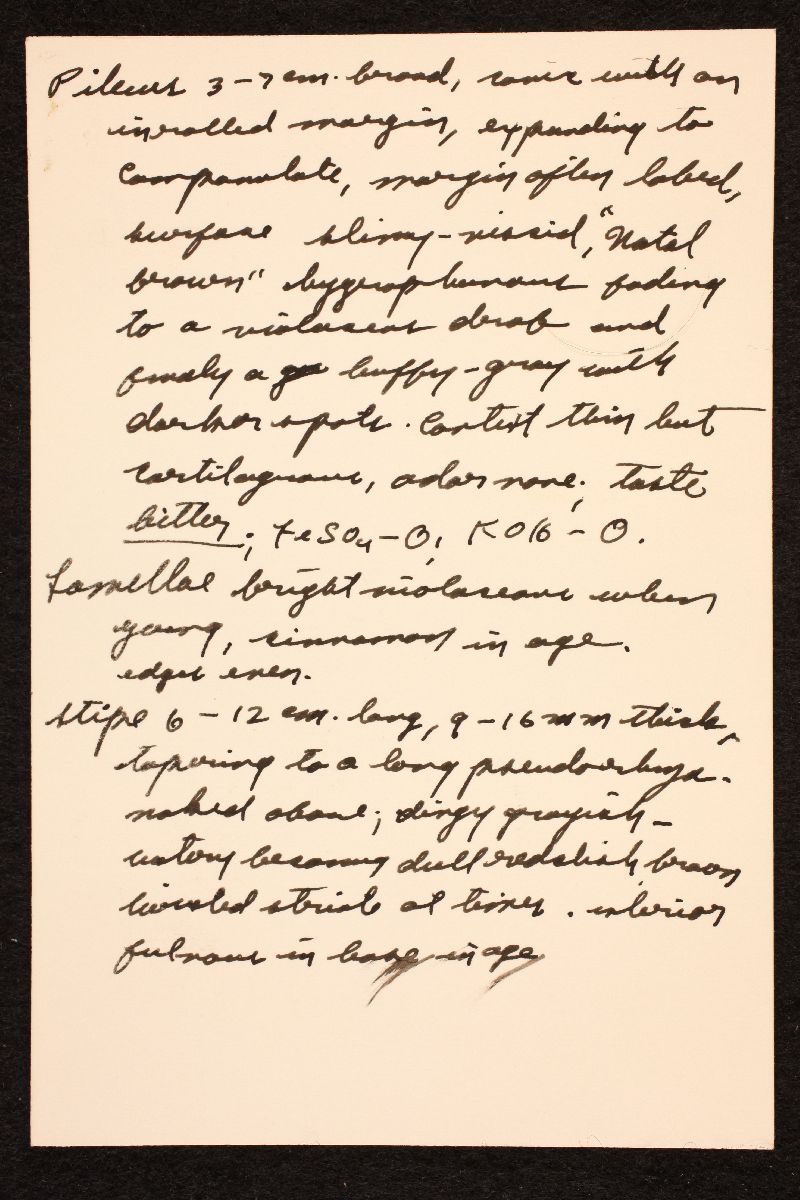 Pileus 3-7 cm. broad, conic with an
inrolled margin, expanding to
campanulate, margin often lobed,
surface slimy-viscid, "Natal
brown" hygrophanous fading
to a violaceous drab and
finaly a buffy-gray with
darker spots. Context thin but
cartilagenous, odor none; taste
bitter; FeSO4-O, KOH-O.
Lamellae bright violaceous when
young, cinnamon in age.
edges even.
Stipe 6-12 cm. long, 9-16 mm thick,
tapering to a long pseudorhiza.
naked above; dingy grayish-
watery becoming dull reddish brown
twisted striate at times. interior
fulvous in base in age